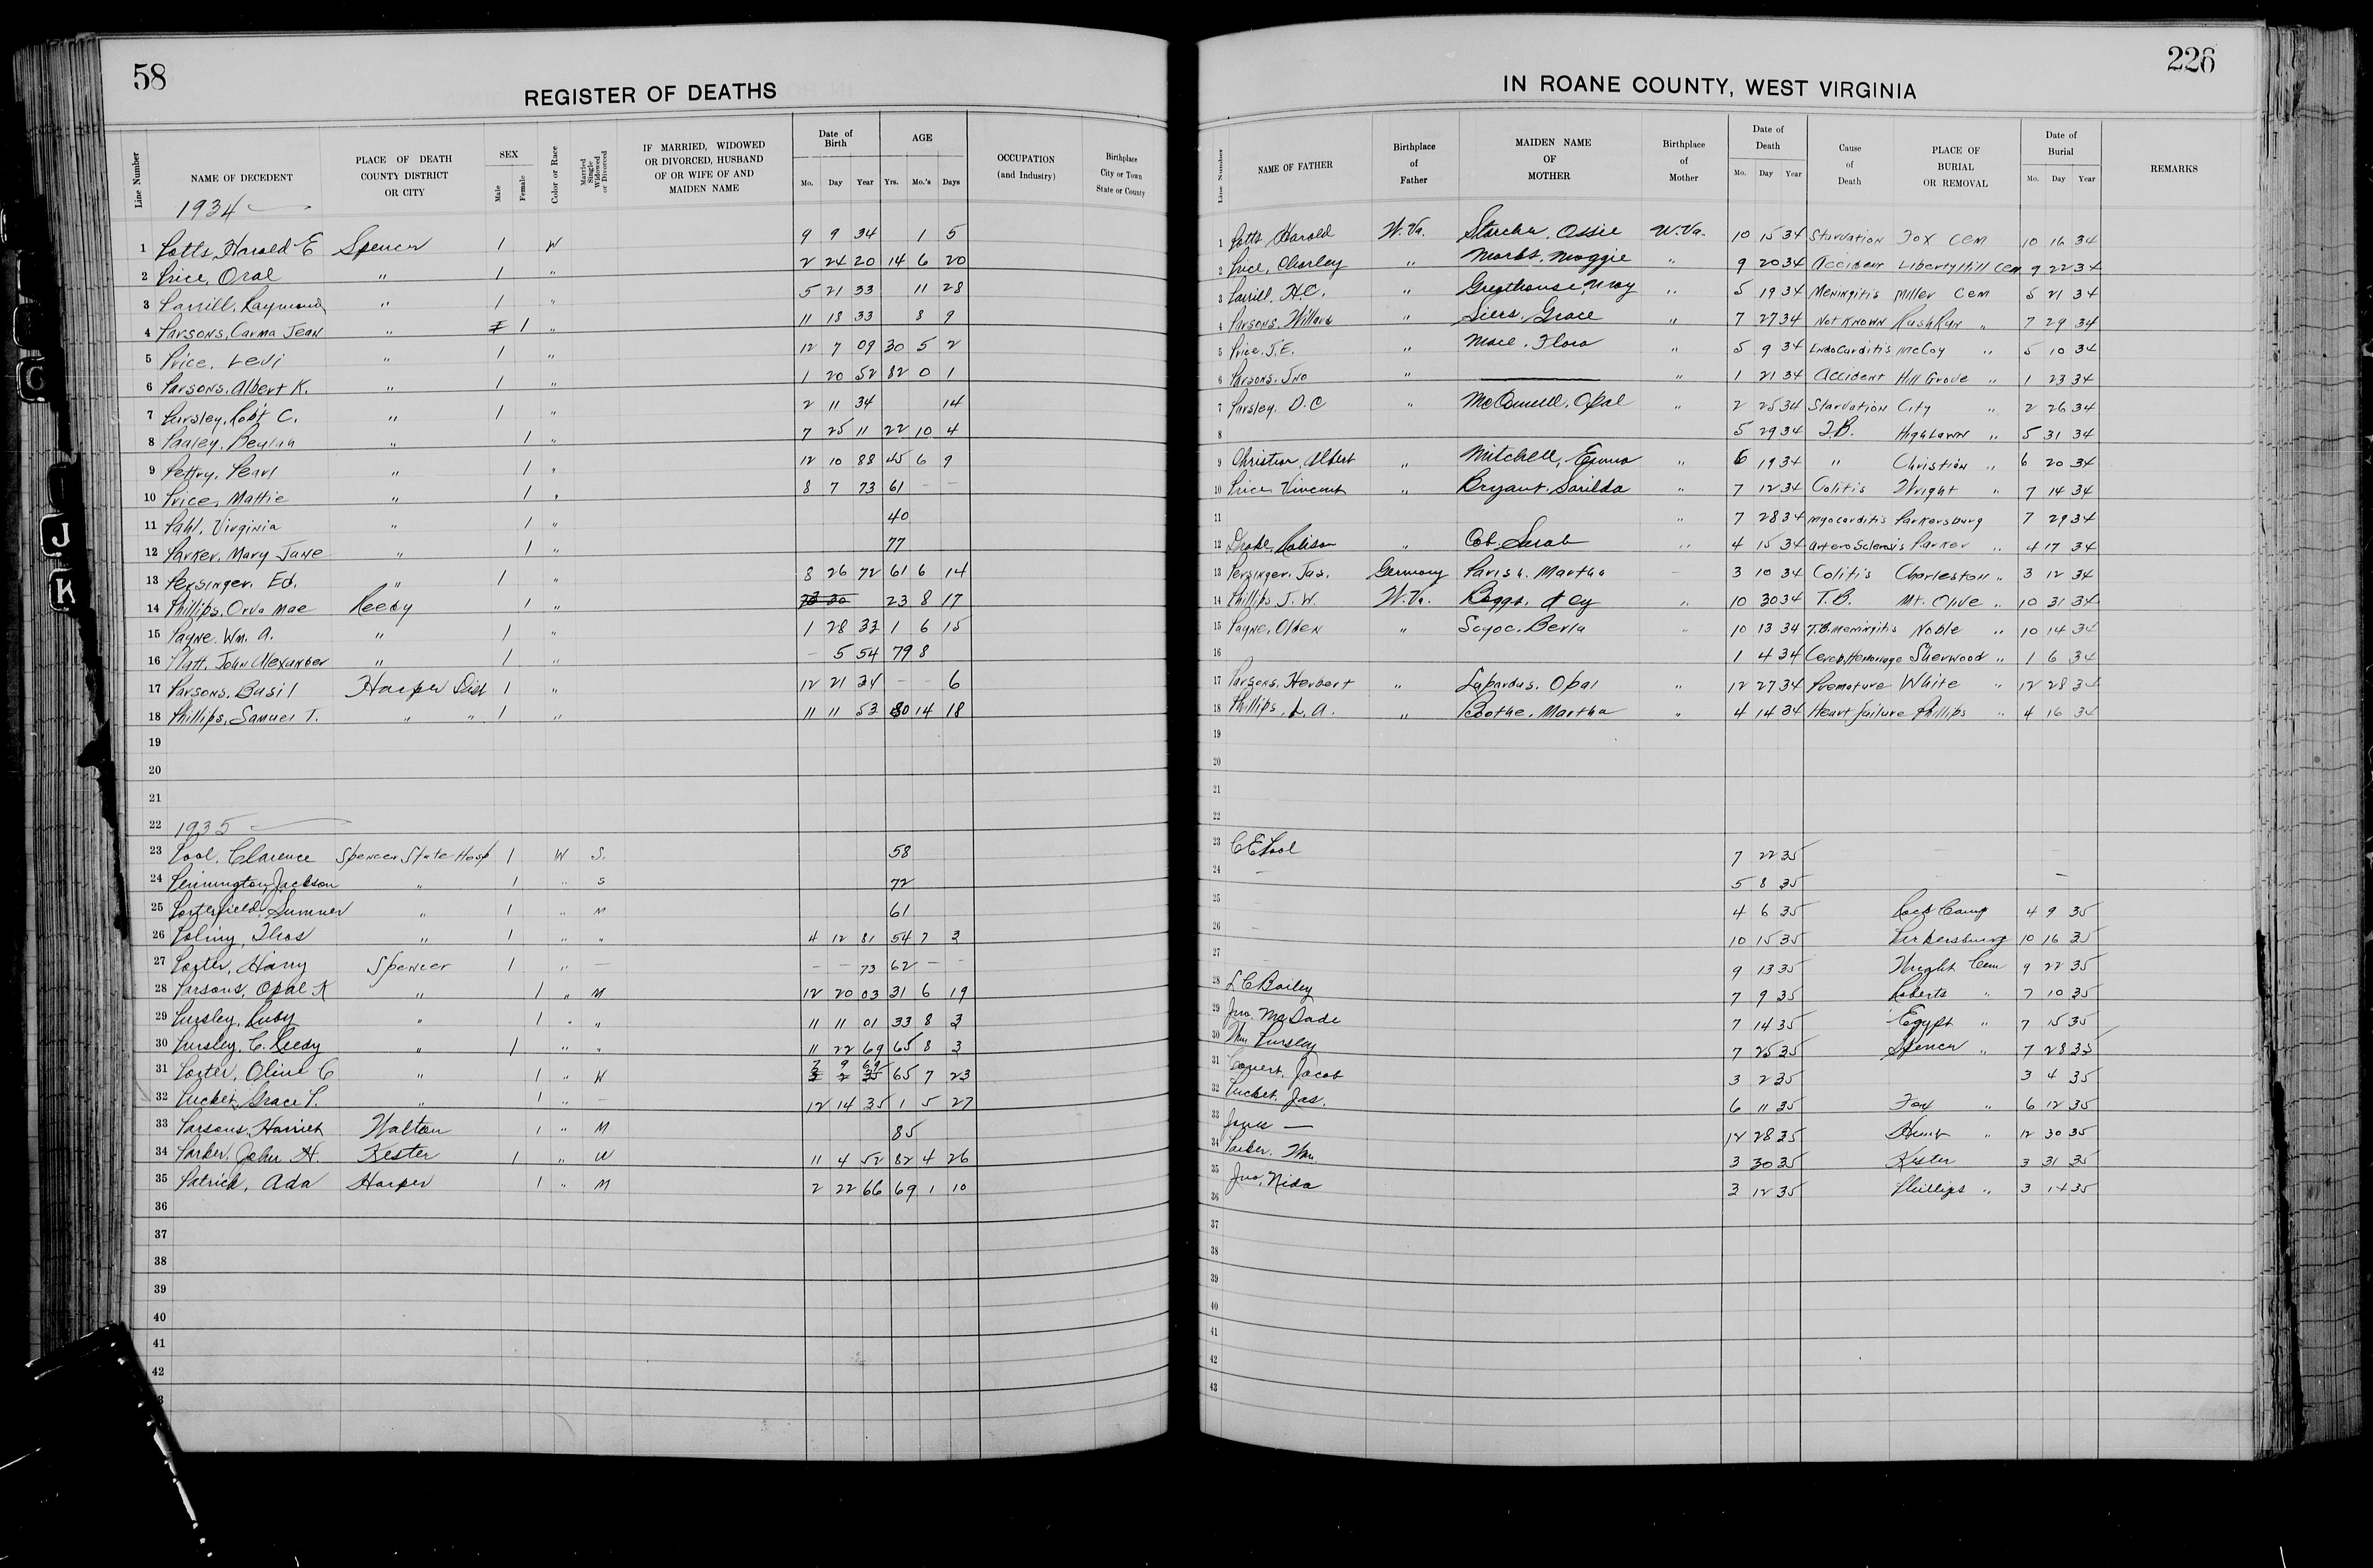 58
REGISTER OF DEATHS
Line Number NAME OF DECEDENT PLACE OF DEATH COUNTY DISTRICT OR CITY SEX Male Female Color or Race Married Single Widowed or Divorced IF MARRIED, WIDOWED OR DIVORCED, HUSBAND OF OR WIFE OF AND MAIDEN NAME Date of Birth Mo. Day Year AGE Yrs. Mo.'s Days OCCUPATION (and Industry) Birthplace City or Town State or County
1934
1 Potts, Harold E Spencer 1 W 9 9 34 1 5
2 Price, Oral " 1 " 2 24 20 14 6 20
3 Parrill, Raymond " 1 " 5 21 33 11 28
4 Parsons, Carma Jean " 1 " 11 18 33 8 9
5 Price, Levi " 1 " 12 7 09 30 5 2
6 Parsons, Albert K. " 1 " 1 20 52 82 0 1
7 Pursley, Robt C. " 1 " 2 11 34 14
8 Beulah " 1 " 7 25 11 22 10 4
9 Pettry, Pearl " 1 " 12 10 88 45 6 9
10 Price, Mattie " 1 " 8 7 73 61 - -
11 Pahl, Virginia " 1 " 40
12 Parker, Mary Jane " 1 " 77
13 Persinger, Ed. " 1 " 8 26 72 61 6 14
14 Phillips, Orva Mae Reedy 1 " 23 8 17
15 Payne, Wm. A. " 1 " 1 28 33 1 6 15
16 Platt, John Alexander " 1 " - 5 54 79 8
17 Parsons, Basil Harper Dist 1 " 12 21 34 - - 6
18 Phillips, Samuel T. " " 1 " 11 11 53 80 14 18
19
20
21
22 1935
23 Pool, Clarence Spencer State Hosp 1 W S. 58
24 Pennington, Jackson " 1 " S 72
25 Porterfield, Sumner " 1 " M 61
26 Thos " 1 " " 4 12 81 54 7 3
27 Porter, Harry Spencer 1 " - - - 73 62 - -
28 Parsons, Opal K " 1 " M 12 20 03 31 6 19
29 Pursley, Ruby " 1 " " 11 11 01 33 8 3
30 Pursley, C. Reedy " 1 " " 11 22 69 65 8 3
31 Porter, Olive C " 1 " W 7 9 69 65 7 23
32 Pucket, Grace P. " 1 " - 12 14 35 1 5 27
33 Parsons, Harriet Walton 1 " M 85
34 Parker, John H. Kester 1 " W 11 4 52 82 4 26
35 Patrick, Ada Harper 1 " M 2 22 66 69 1 10
36
37
38
39
40
41
42
3
226
IN ROANE COUNTY, WEST VIRGINIA
Line Number NAME OF FATHER Birthplace of Father MAIDEN NAME OF MOTHER Birthplace of Mother Date of Death Mo. Day Year Cause of Death PLACE OF BURIAL OR REMOVAL Date of Burial Mo. Day Year REMARKS
1 Potts Harold W.Va. Starcher, Ossie W.Va. 10 15 34 Starvation Fox Cem 10 16 34
2 Price, Charley " Marks, Maggie " 9 20 34 Accident Liberty Hill Cem 9 22 34
3 Parrill, H.C. " Greathouse, May " 5 19 34 Meningitis Miller Cem 5 21 34
4 Parsons, Willard " Siers, Grace " 7 27 34 Not Known Rush Run " 7 29 34
5 Price, J.E. " Mace, Flora " 5 9 34 Endocarditis McCoy " 5 10 34
6 Parsons, Jno " " 1 21 34 Accident Hill Grove " 1 23 34
7 Pursley, D.C " McConnell, Opal " 2 25 34 Starvation City " 2 26 34
8 5 29 34 T.B. HighLawn " 5 31 34
9 Christian, Albert " Mitchell, Emma " 6 19 34 " Christian " 6 20 34
10 Price, Vincent " Bryant, Sarilda " 7 12 34 Colitis Wright " 7 14 34
11 " 7 28 34 Myocarditis Parkersburg 7 29 34
12 Drake, " Cob, Sarah " 4 15 34 Artero Sclerosis Parker " 4 17 34
13 Persinger, Jas. Germany Parish, Martha - 3 10 34 Colitis Charleston " 3 12 34
14 Phillips, J. W. W.Va. Boggs, " 10 30 34 T.B. Mt. Olive " 10 31 34
15 Payne, Olden " Scyoc, Berla " 10 13 34 T.B. Meningitis Noble " 10 14 34
16 1 4 34 Cereb. Hemorrage Sherwood " 1 6 34
17 Parsons, Herbert " Lupardus, Opal " 12 27 34 Premature White " 12 28 34
18 Phillips, L. A. " Boothe, Martha " 4 14 34 Heart failure Phillips " 4 16 34
19
20
21
22
23 C E Pool 7 22 35 - -
24 - 5 8 35 -
25 4 6 35 Rock Camp 4 9 35
26 10 15 35 Parkersburg 10 16 35
27 9 13 35 Wright Cem 9 22 35
28 L C Bailey 7 9 35 Roberts " 7 10 35
29 Jno. McDade 7 14 35 Egypt " 7 15 35
30 Wm Pursley 7 25 35 Spencer " 7 28 35
31 Jacob 3 2 35 3 4 35
32 Pucket, Jas. 6 11 35 Fox " 6 12 35
33 Jones — 12 28 35 " 12 30 35
34 Parker, Wm. 3 30 35 Kester 3 31 35
35 Jno, Nida 3 12 35 Phillips " 3 14 35
36
37
38
39
40
41
42
43
C
J
K